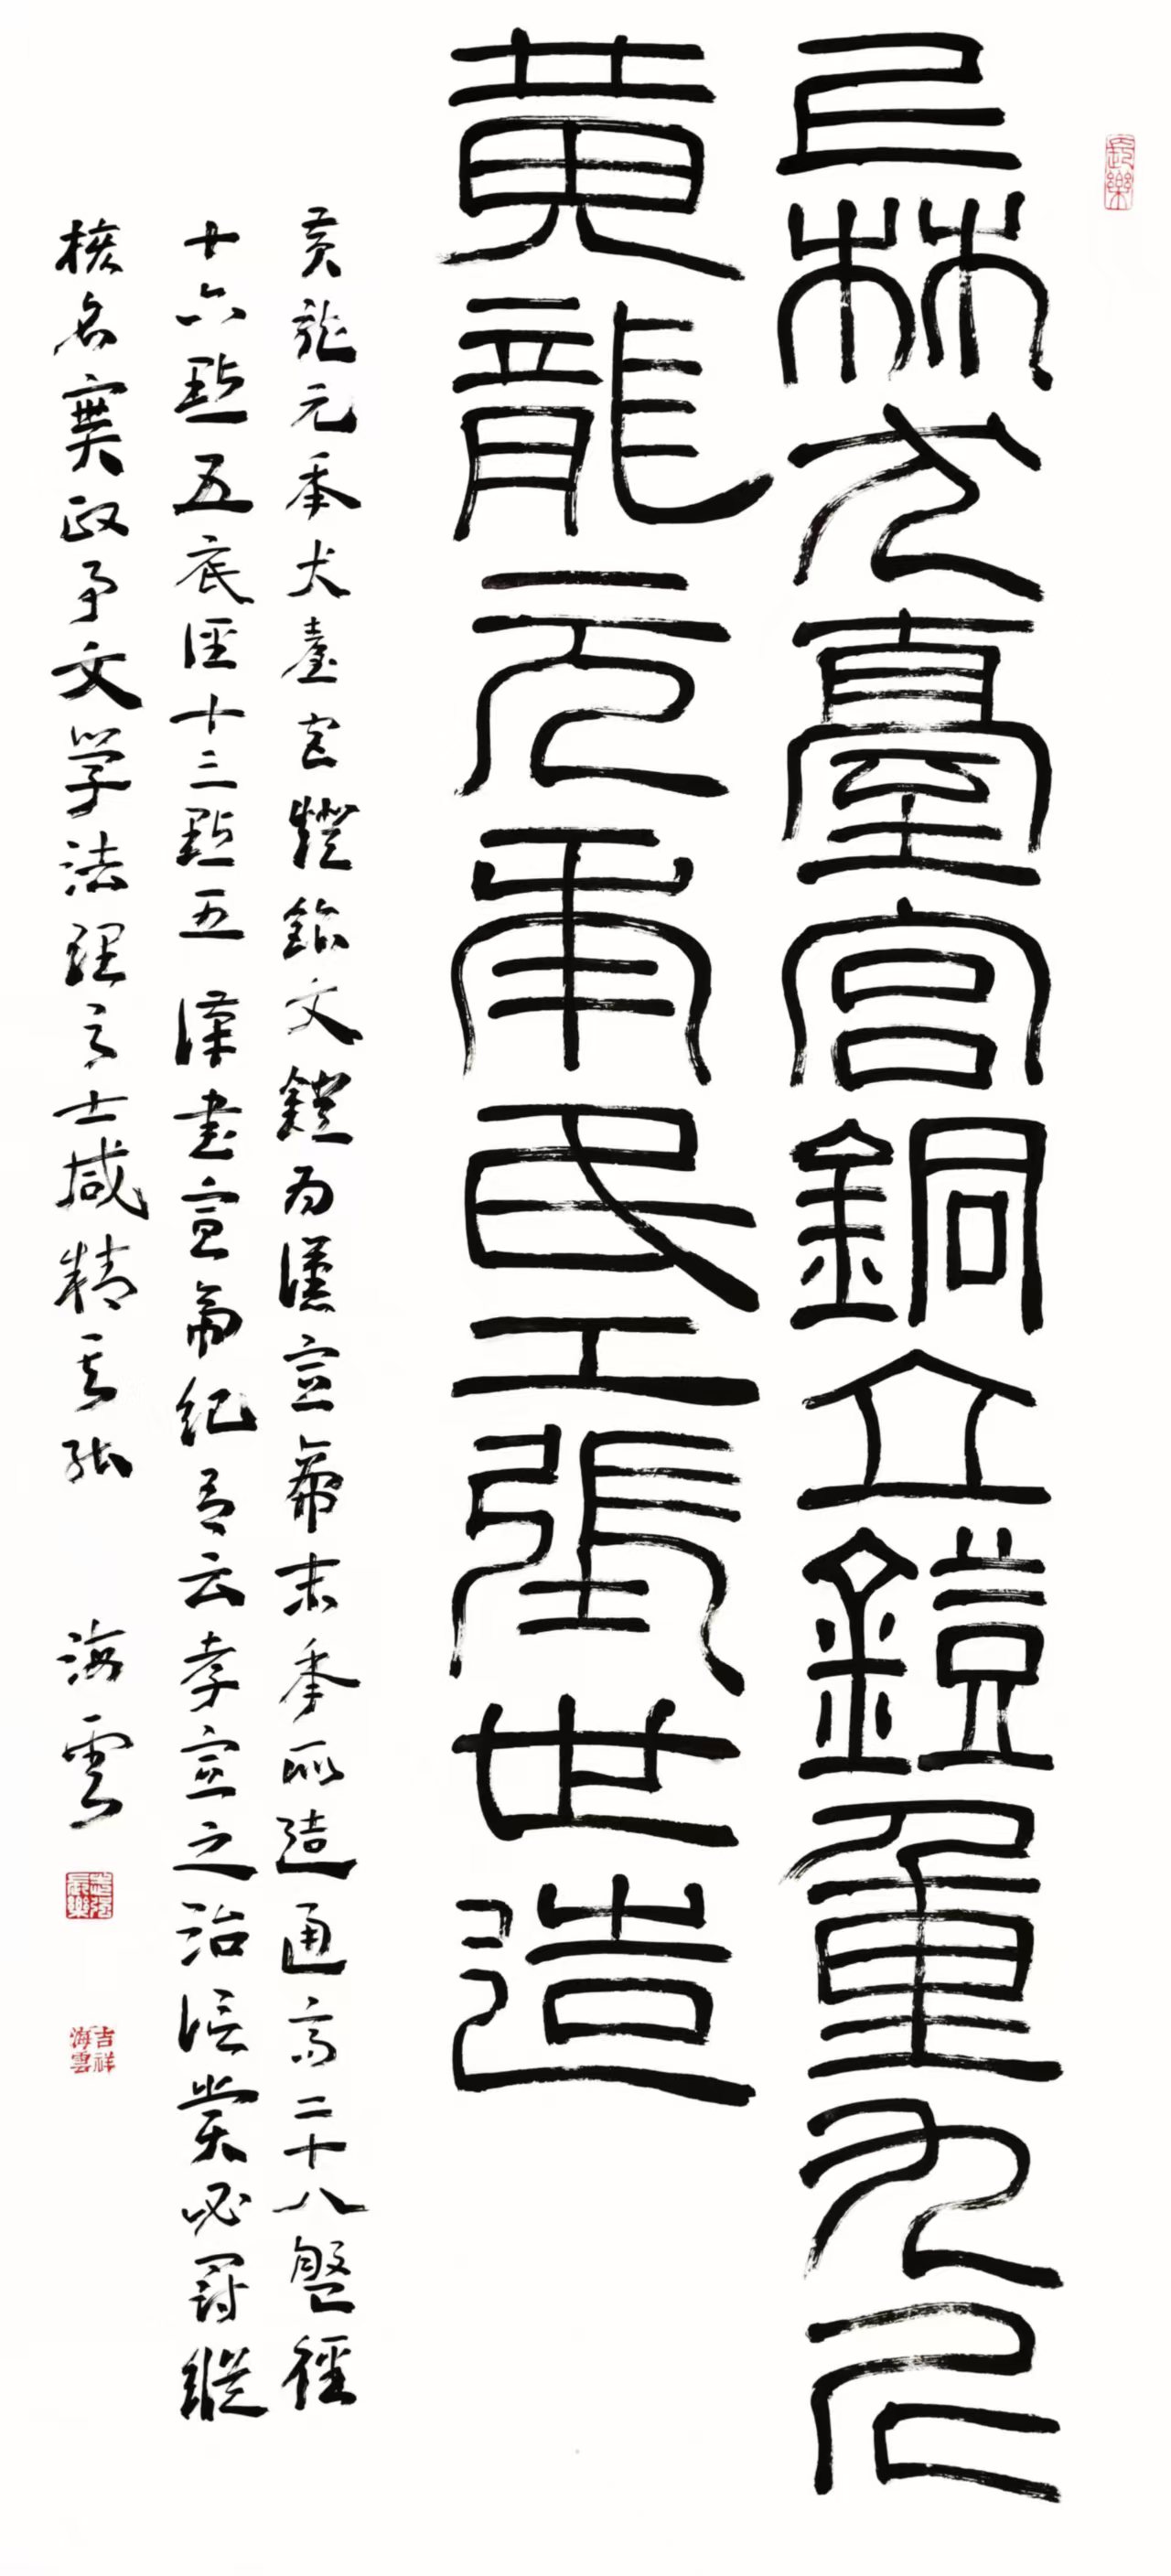 上林犬臺宮銅立鐙重九斤
黃龍元年民工張世造
黃龍元年犬臺宮鐙銘文鐙為漢宣帝末年所造通高二十八盤徑
十六點五底徑十三點五漢書宣帝紀有云孝宣之治信賞必罰縱
核名實政事文學法理之士咸精其能 海雲
長樂
吉祥海雲